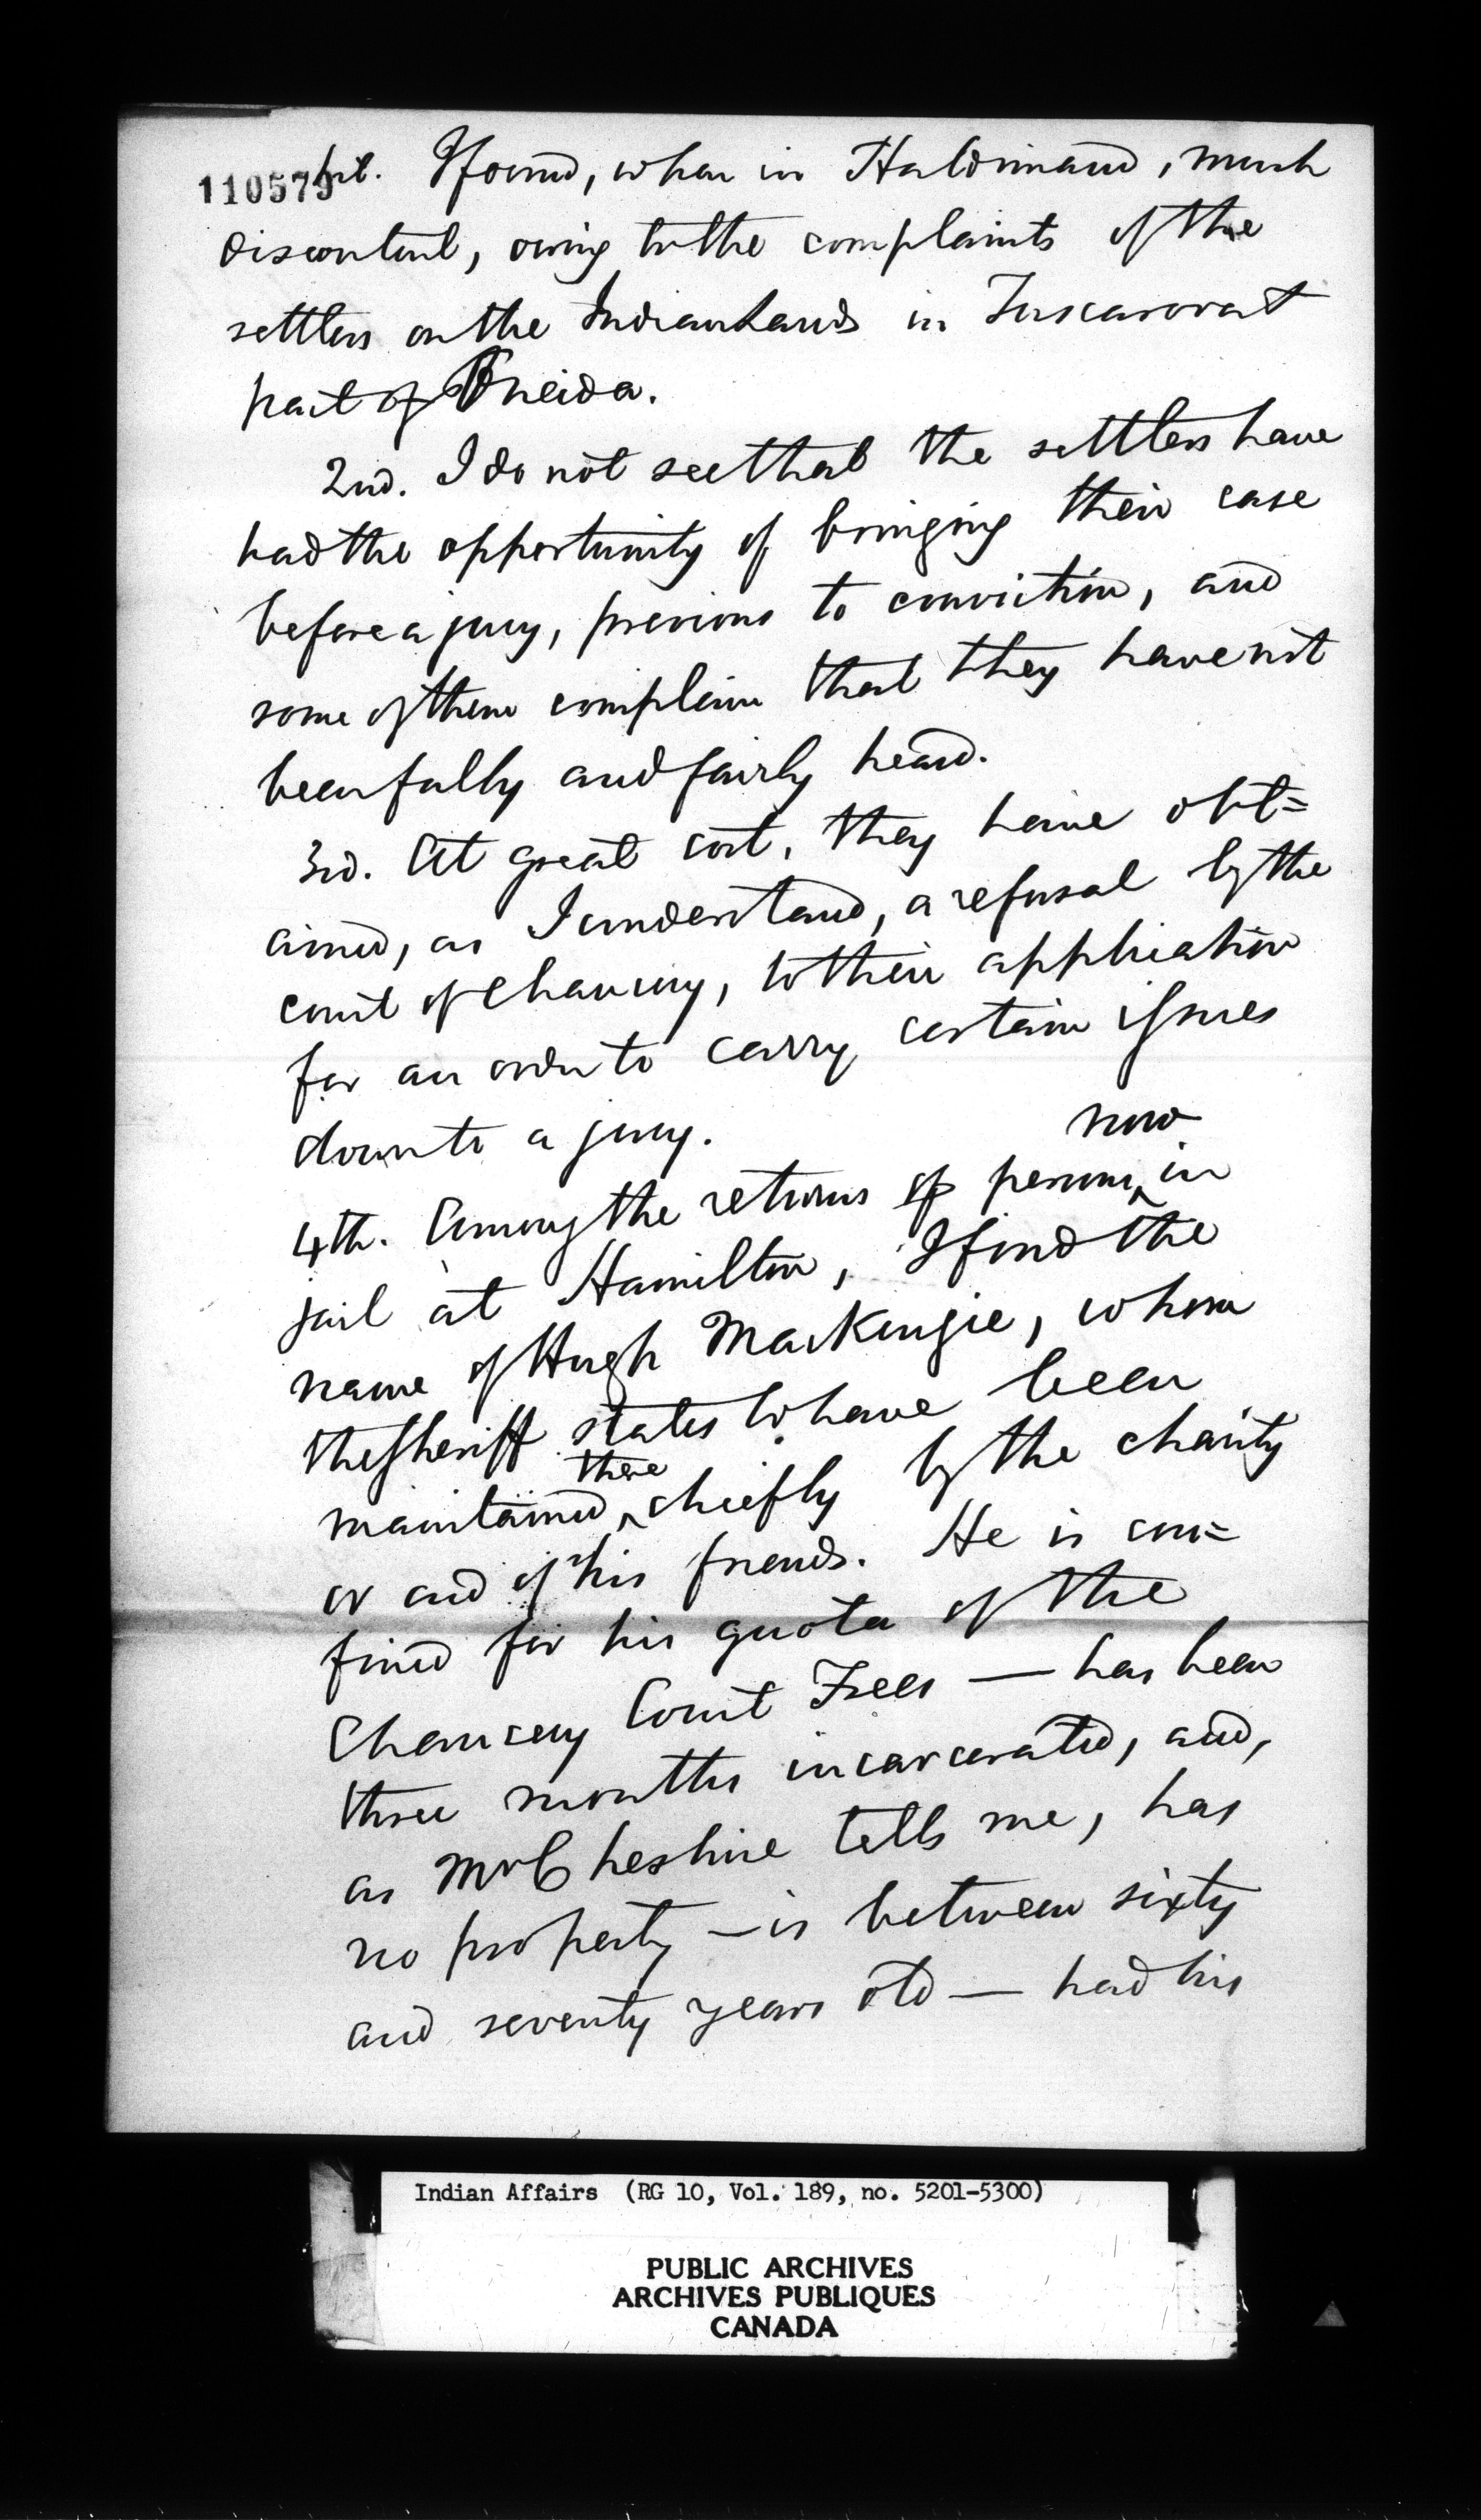 110579
1st. I found, when in Haldimand, much
discontent, owing to the complaints of the
settlers on the Indian Lands in Tuscarora &
part of Oneida.
2nd. I do not see that the settlers have
had the opportunity of bringing their case
before a jury, previous to conviction, and
some of them complain that they have not
been fully and fairly heard.
3rd. At great cost, they have obt=
ained, as I understand, a refusal by the
court of Chancery, to their application
for an order to carry certain issues
down to a jury.
now
4th. Among the returns of persons ‸ in
jail at Hamilton, I find the
name of Hugh MacKenzie, whom
the Sheriff states to have been
there
maintained ‸ chiefly by the charity
or aid of his friends. He is con=
fined for his quota of the
Chancery Court Fees — has been
three months incarcerated, and,
as Mr Cheshire tells me, has
no property — is between sixty
and seventy years old — had his
Indian Affairs (RG 10, Vol. 189, no. 5201-5300)
PUBLIC ARCHIVES
ARCHIVES PUBLIQUES
CANADA